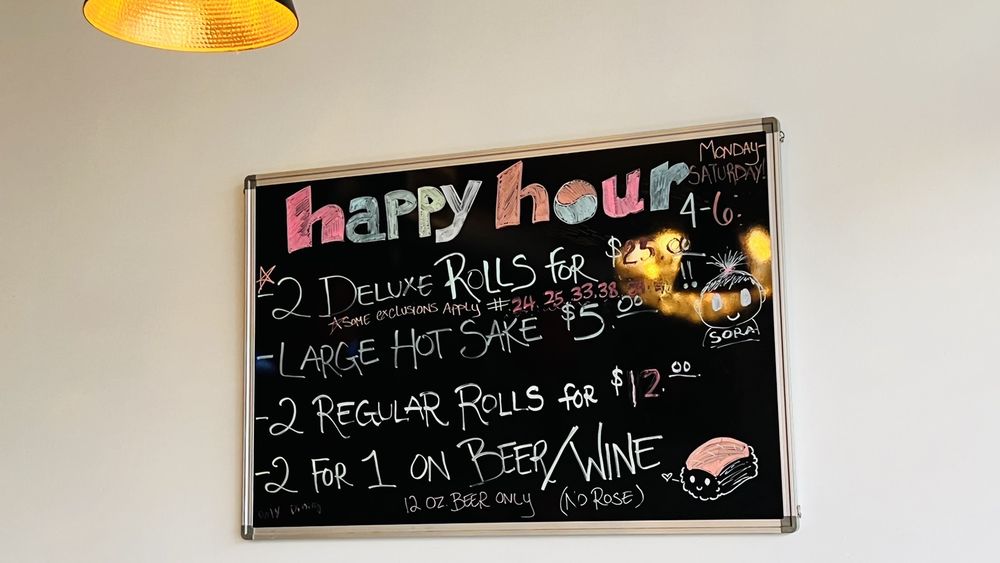 happy hour
MONDAY-
SATURDAY!
4-6:
-2 DELUXE ROLLS FOR $25.00 !!
*SOME EXCLUSIONS APPLY #.24.25.33.38.
SORA
-LARGE HOT SAKE $5.00
-2 REGULAR ROLLS FOR $12.00
-2 FOR 1 ON BEER/WINE
12 OZ. BEER ONLY (NO ROSE)